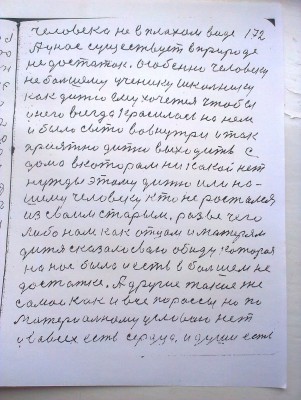 человека не в плахом виде 172
А у нас существует в природе
недостаток. Особенно человеку
небольшому ученику школнику
как дитю ему хочется чтобы
у него всегда красилась на нем
и было сыто вовнутри и так
приятно дитю выходить с
дома в котором ни какой нет
нужды этому дитю или на-
шему человеку кто не ростался
из своим старым, разве чего
либо нам как отцам и матерям
дитя сказала свою обиду которая
на нас была и есть в большем не
достатке. А другие такие же
самои как и все порассы но по
материалному условию нет
у всех есть сердца, и души есть